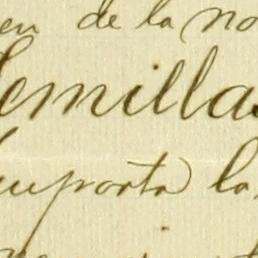 en de la no
Semillas
importa la